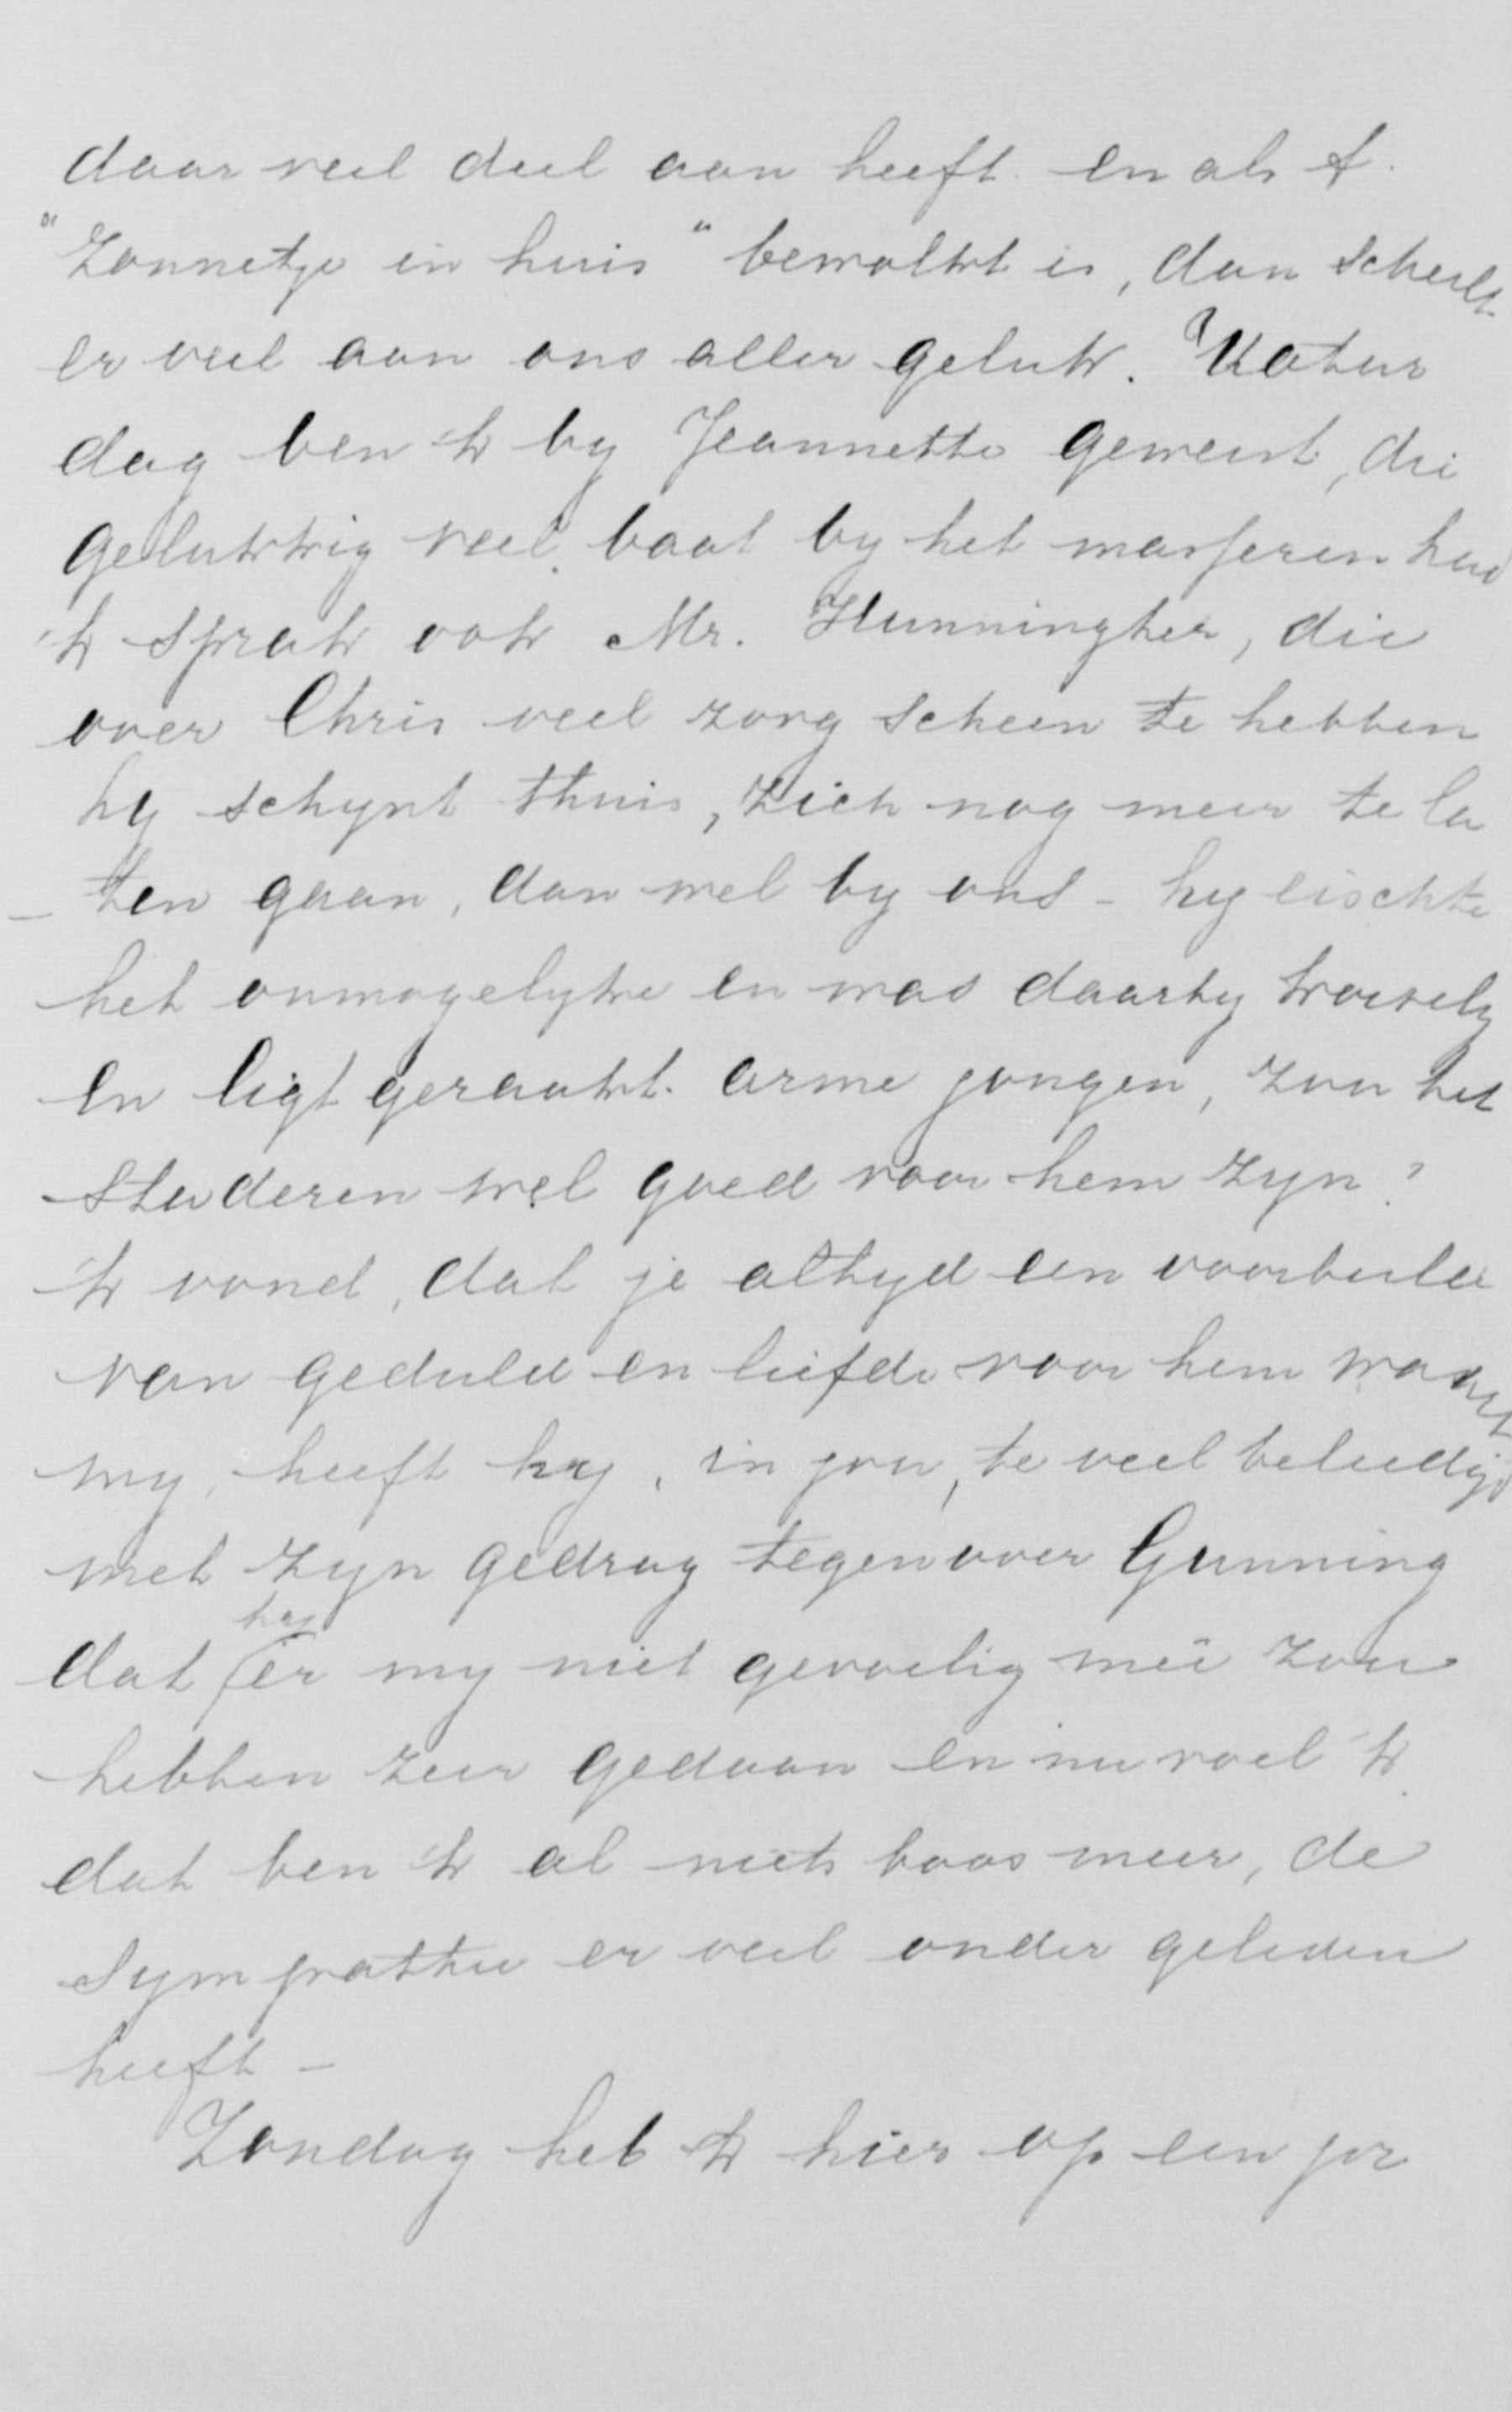 daar veel deel aan heeft. en als 't
"Zonnetje in huis" bewolkt is, dan scheelt
er veel aan ons aller geluk. Zatur
dag ben 'k by Jeannette geweest, die
gelukkig veel baat by het masseren had
'k sprak ook Mr. Hunningher, die
over Chris veel zorg scheen te hebben
hy schynt thuis, zich nog meer te la
-ten gaan, dan wel by ons - hy eischte
het onmogelyke en was daarby
en ligt geraakt. arme jongen, zou het
studeren wel goed voor hem zyn?
'k vond, dat je altyd een voorbeeld
van geduld en liefde voor hem
my, heeft hy, in jou, te veel beledigd
met zyn gedrag tegenover Gunning
dat hy er my niet gevoelig meê zou
hebben zeer gedaan en nu voel 'k
dat ben 'k al niets boos meer, de
sympathie er veel onder geleden
heeft -
Zondag heb 'k hier op een